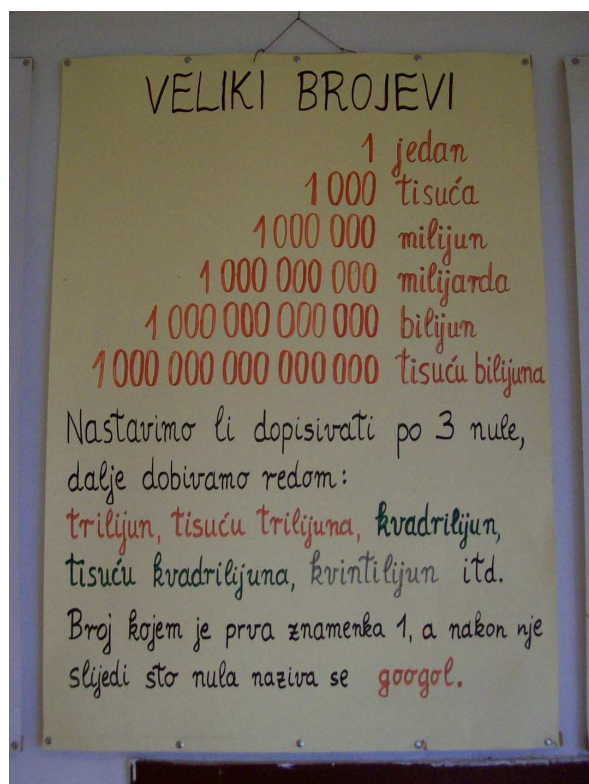 VELIKI BROJEVI
1 jedan
1 000 tisuća
1 000 000 milijun
1 000 000 000 milijarda
1 000 000 000 000 bilijun
1 000 000 000 000 000 tisuću bilijuna
Nastavimo li dopisivati po 3 nule,
dalje dobivamo redom:
trilijun, tisuću trilijuna, kvadrilijun,
tisuću kvadrilijuna, kvintilijun itd.
Broj kojem je prva znamenka 1, a nakon nje
slijedi sto nula naziva se googol.